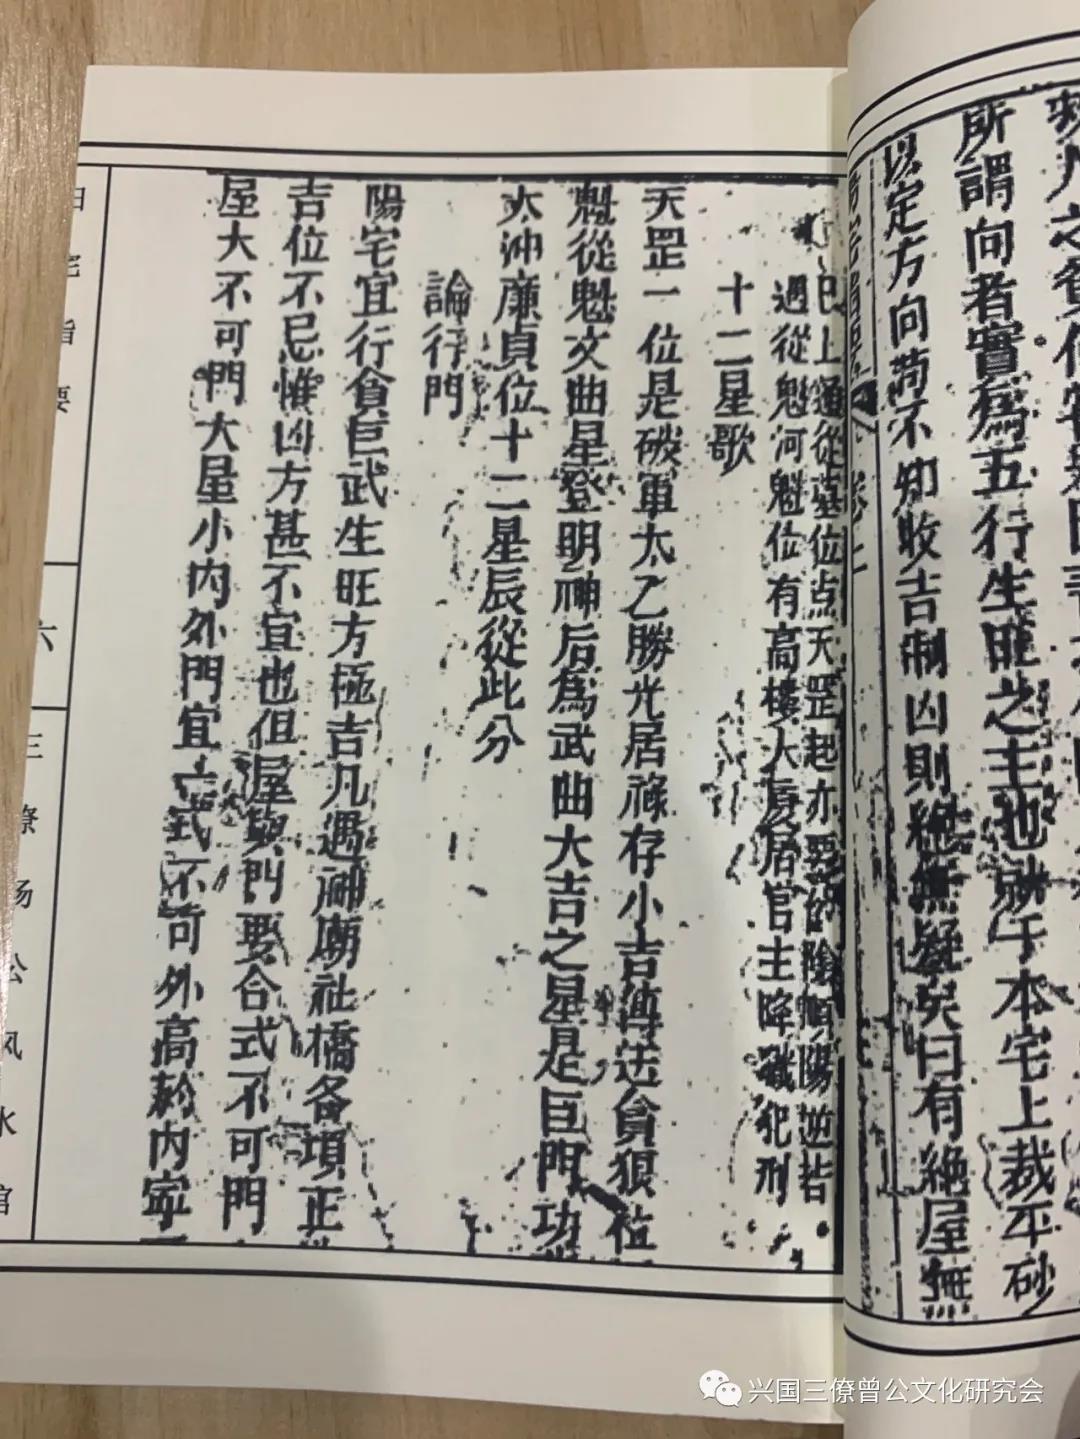 所謂向者實為五行生旺之主也就于本宅上裁平砂
以定方向苟不知收吉制凶則絕無疑矣曰有絕屋無
巳上通從墓位点天罡起亦要的陰順陽逆若
遇從魁河魁位有高樓大廈居官主降職犯刑
十二星歌
天罡一位是破軍太乙勝光居祿存小吉傳送貪狼位
魁從魁文曲星登明神后為武曲大吉之星是巨門功
太沖廉貞位十二星辰從此分
論行門
陽宅宜行貪巨武生旺方極吉凡遇神廟社橋各項正
吉位不忌惟凶方甚不宜也但屋與門要合式不可門
屋大不可門大屋小內外門宜一式不可外高於內寧
宅指要
六
三僚杨公风水馆
兴国三僚曾公文化研究会